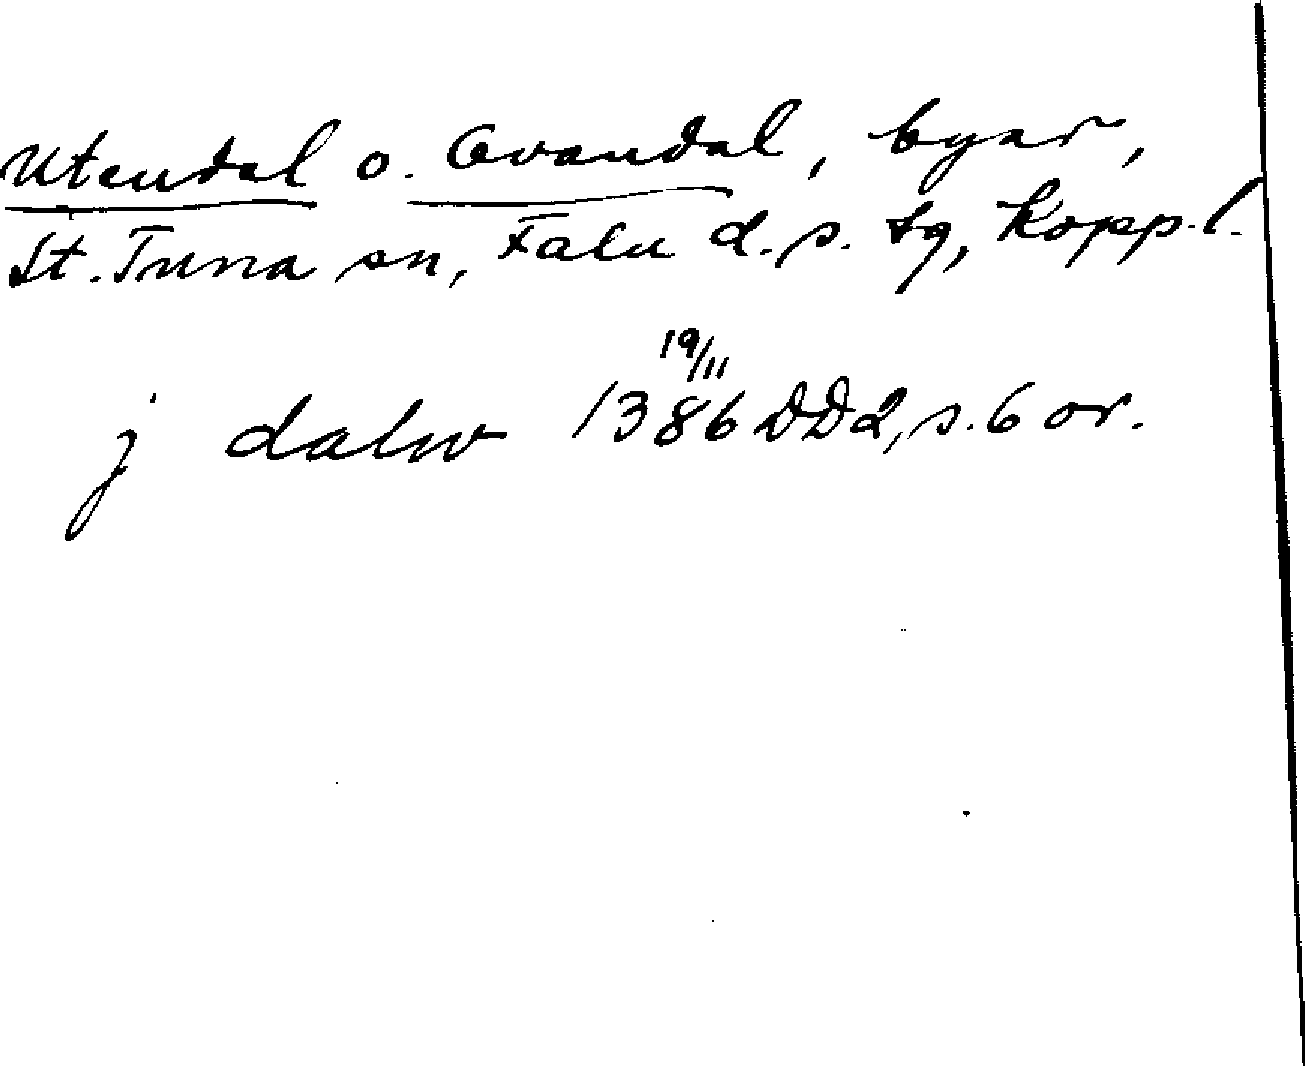 Utendal o. Ovandal, byar,
St. Tuna sn, Falu d. s. tg, Kopp. l.
j dalw 1386 19/11 DD2, s. 6 or.